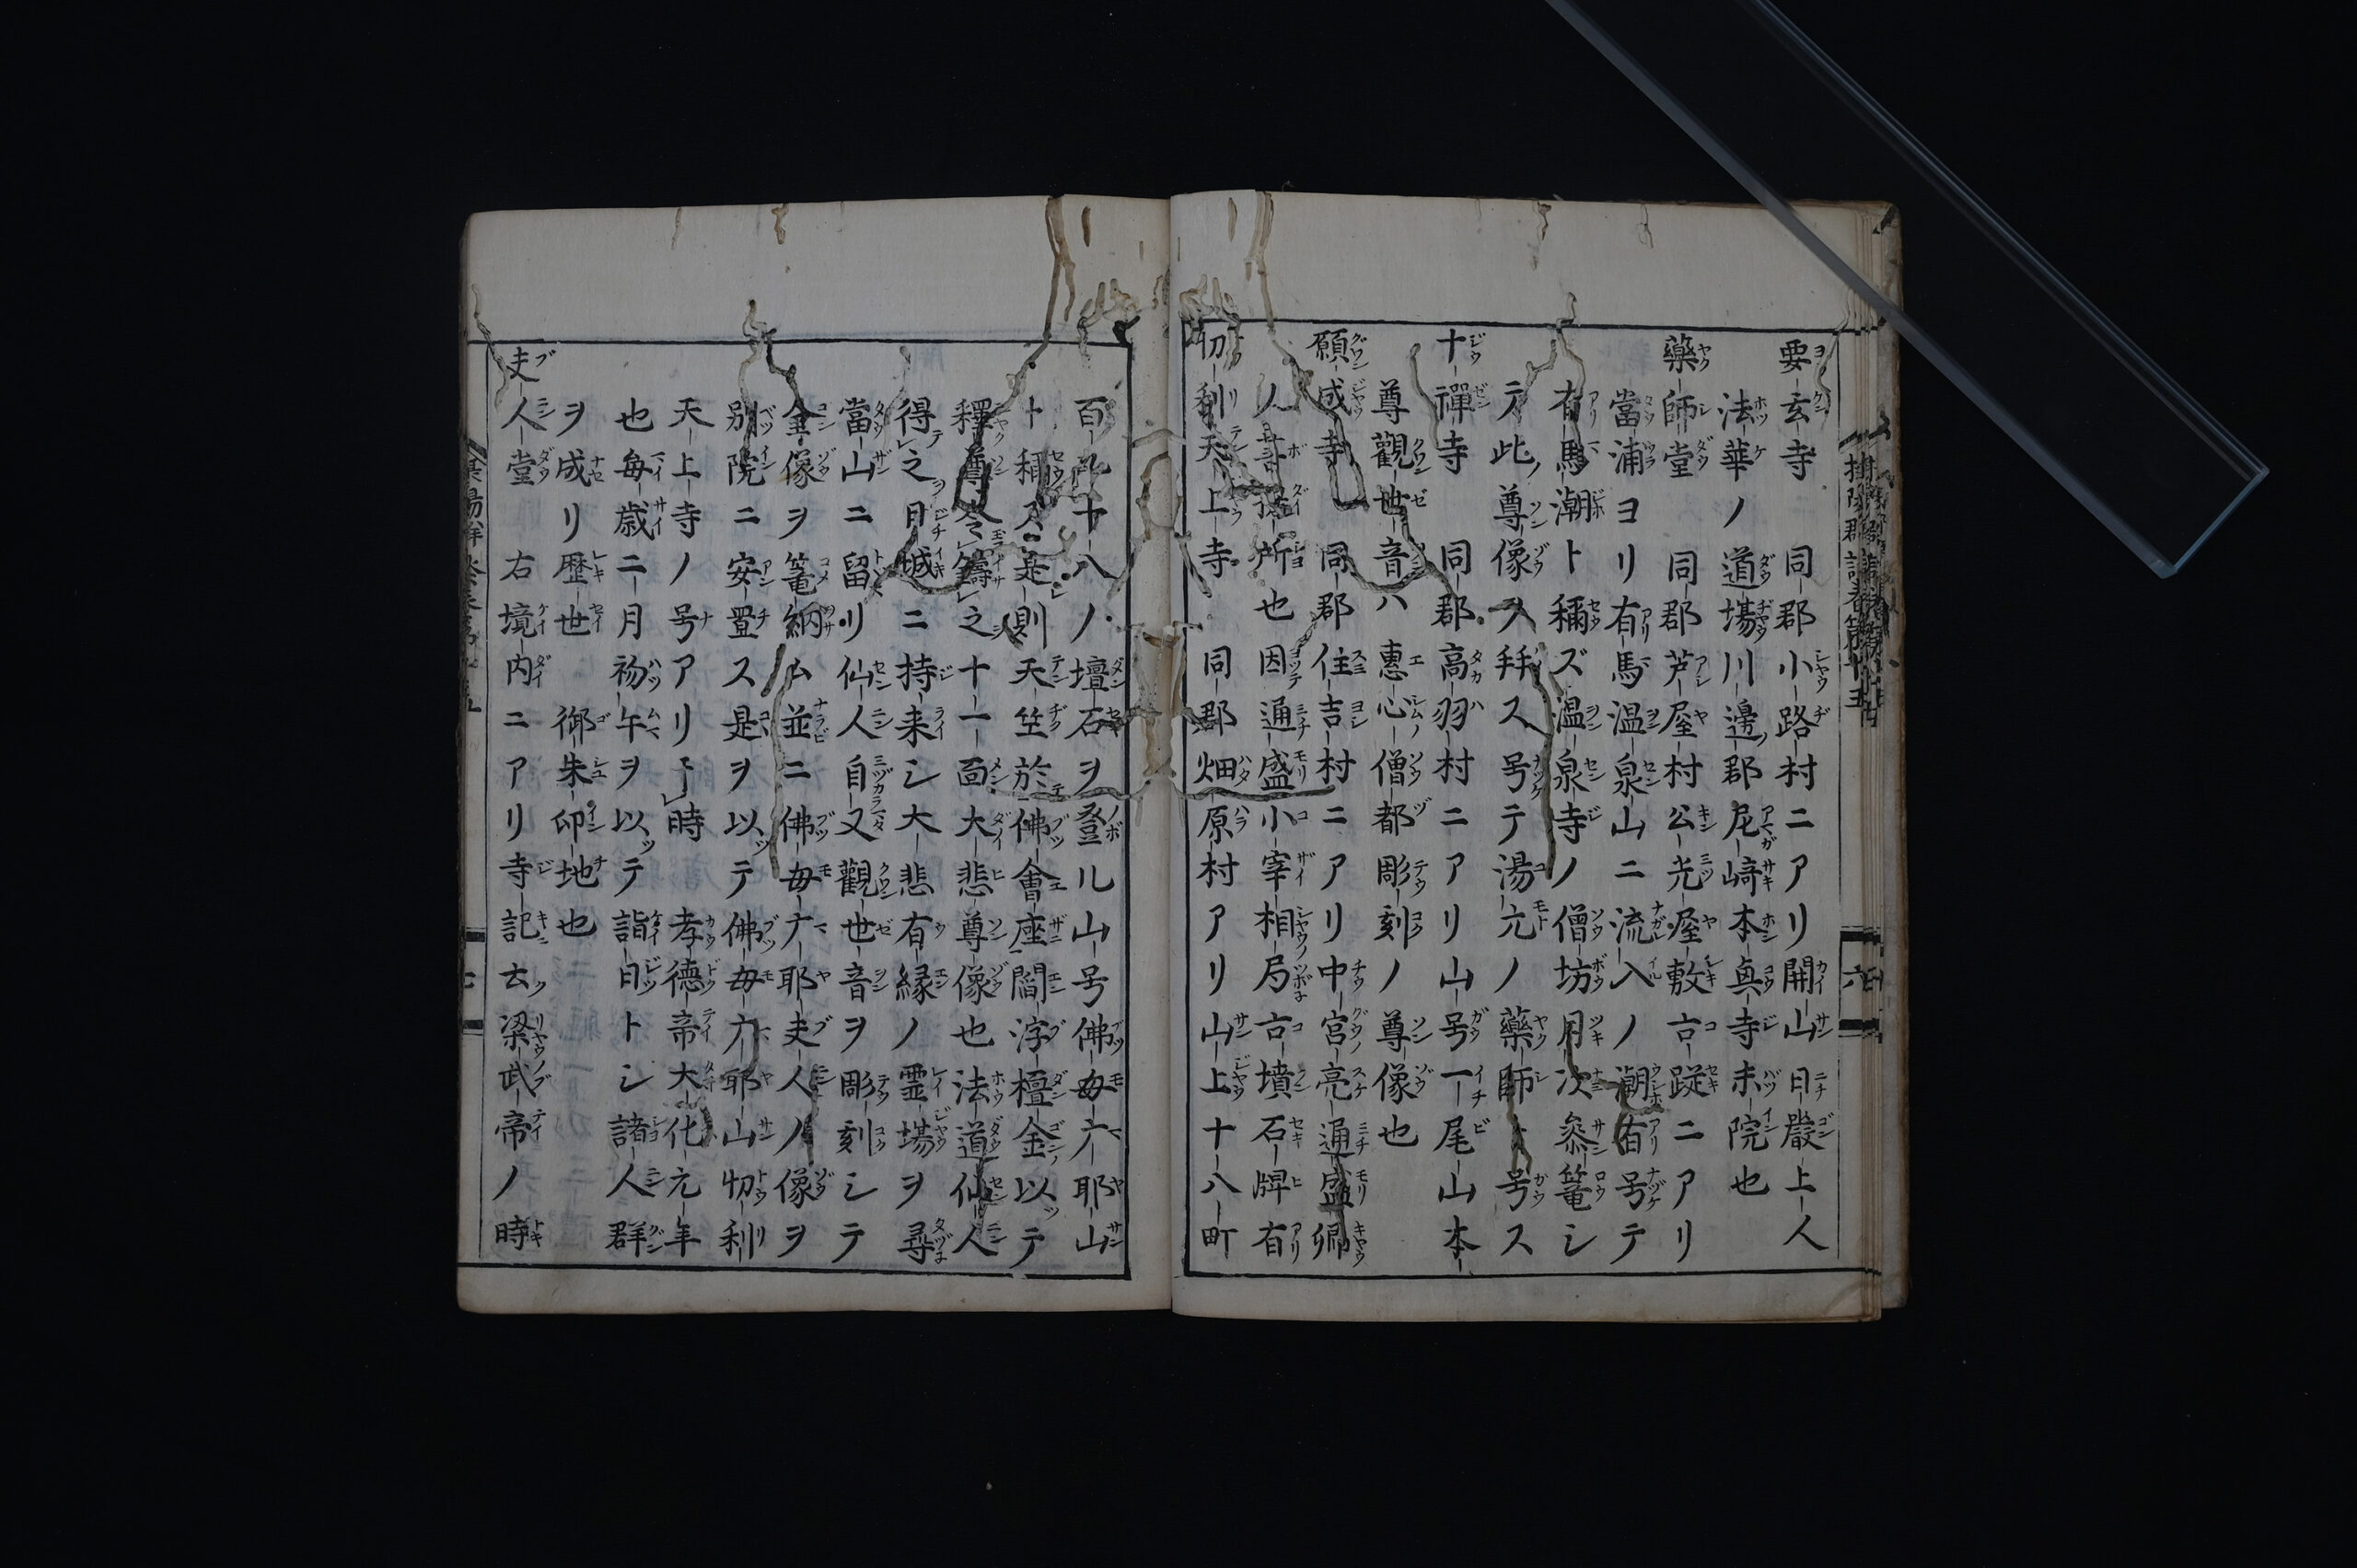 要玄寺 同郡小路村ニアリ開山日嚴上人
法華ノ道塲川邊ノ郡尼崎本興寺末院也
藥師堂 同郡芦屋村公光屋敷古跡ニアリ
當浦ヨリ有馬温泉山ニ流入ノ潮有号テ
有馬潮ト稱ズ温泉寺ノ僧坊月次叅篭シ
テ此ノ尊像ヲ拜ス号テ湯元ノ藥師ト号ス
十禪寺 同郡高羽村ニアリ山号一尾山本
尊觀世音ハ惠心僧都彫刻ノ尊像也
願成寺 同郡住吉村ニアリ中宮ノ亮通盛卿
ノ菩提所也因通盛小宰相ノ局古墳石碑有
忉利天上寺 同郡畑原村アリ山上十八町
百八十八ノ壇石ヲ登ル山号佛母广耶山
ト稱ス是則天竺於佛會座閻浮檀金以テ
釋尊令鑄之十一面大悲尊像也法道仙人
得之日城ニ持来シ大悲有縁ノ霊塲ヲ尋
當山ニ留リ仙人自又觀世音ヲ彫刻シテ
金像ヲ篭納ム並ニ佛母广耶夫人ノ像ヲ
別院ニ安置ス是ヲ以テ佛母广耶山忉利
天上寺ノ号アリ于時孝德帝大化元年
也毎歳二月初午ヲ以テ詣日トシ諸人群
ヲ成リ歴世 御朱印地也
夫人堂 右境内ニアリ寺記云梁武帝ノ時